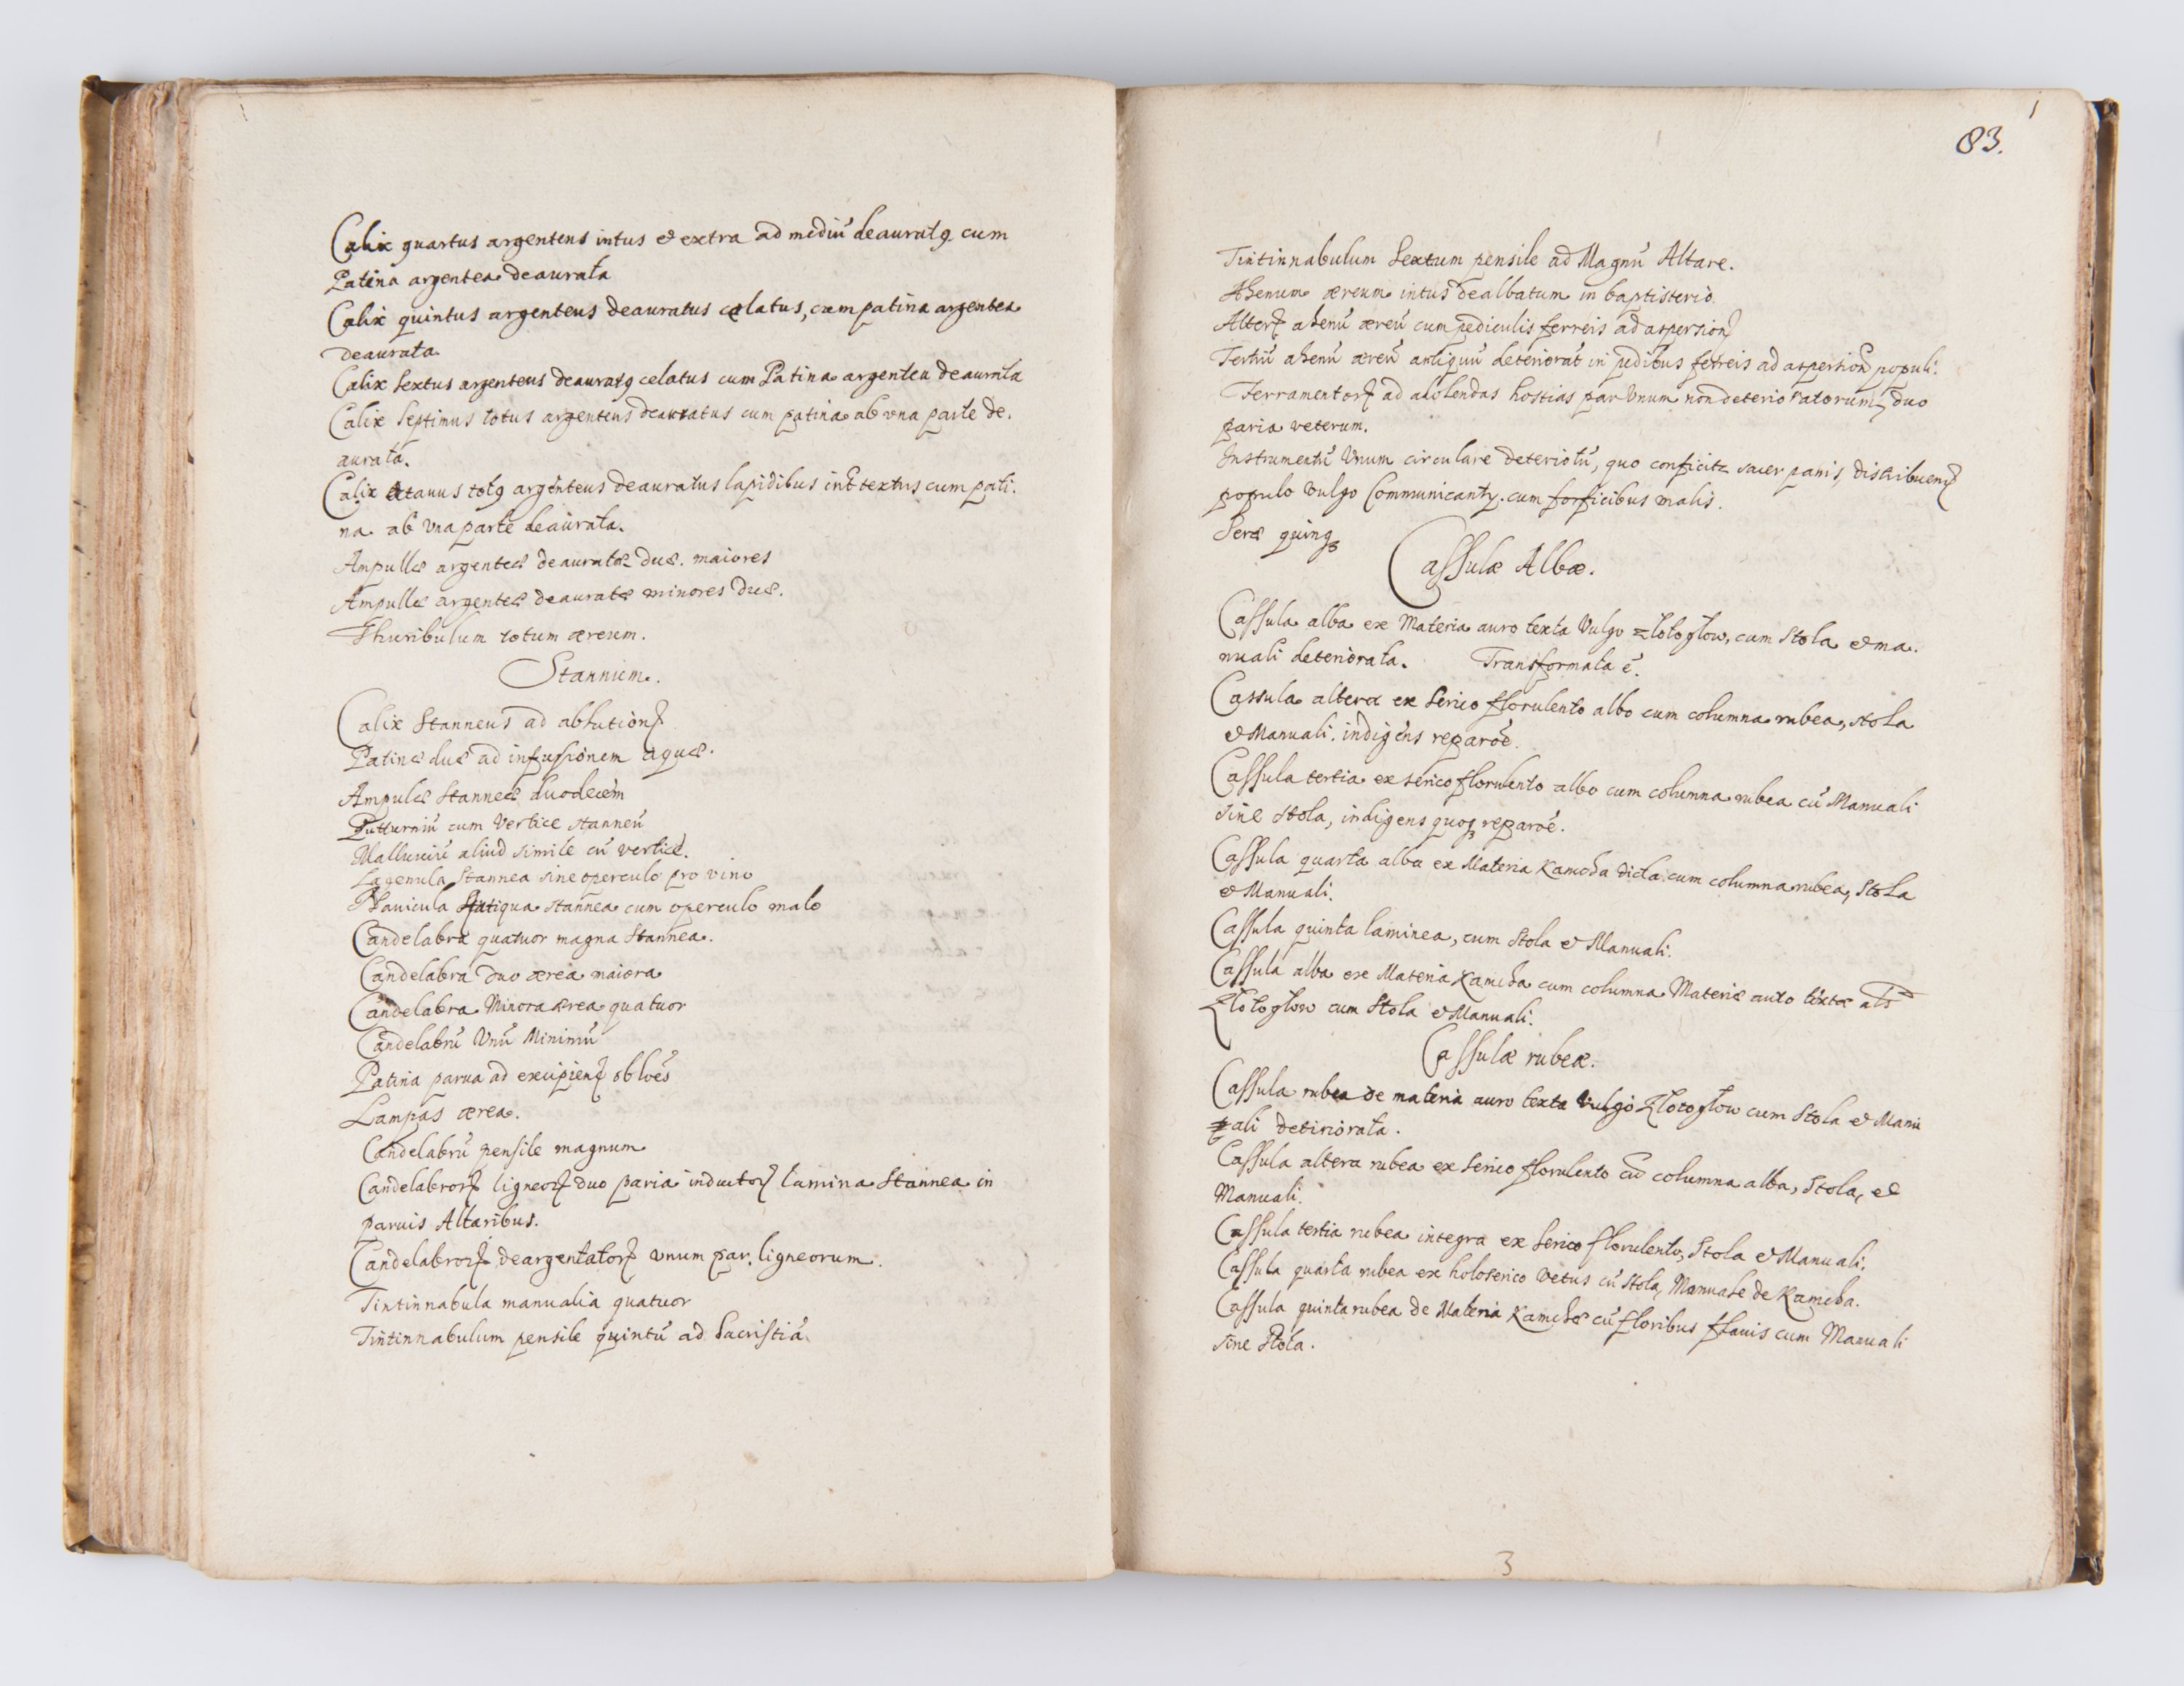 Calix quartus argenteus intus et extra ad mediū deauratꝰ cum
Patina argentea deaurata
Calix quintus argenteus deauratus cęlatus, cum patina argentea
deaurata.
Calix sextus argenteus deauratꝰ celatus cum Patina argentea deaurata
Calix septimus totus argenteus deauratus cum patina ab vna parte de-
aurata.
Calix octauus totꝰ argenteus deauratus lapidibus intertextus cum pati-
na ab vna parte deaurata.
Ampullæ argenteæ deauratæ duæ maiores
Ampullæ argenteæ deauratæ minores duæ.
Thuribulum totum æreum.
Stannum.
Calix stanneus ad ablutionē
Patinæ duæ ad infusionem aquæ.
Ampulæ stanneæ duodecem
Gutturniū cum vertice stanneū
Malluuiū aliud simile cū vertice.
Lagenula stannea sine operculo pro vino
Flauicula antiqua stannea cum operculo malo
Candelabra quatuor magna stannea.
Candelabra duo ærea maiora
Candelabra Minora ærea quatuor
Candelabrū Vnū Minimū
Patina parua ad excipiend oblōes
Lampas ærea.
Candelabrū pensile magnum
Candelabroꝝ ligneoꝝ duo paria inductoꝝ lamina stannea in
paruis Altaribus.
Candelabroꝝ deargentatoꝝ vnum par ligneorum.
Tintinnabula manualia quatuor
Tintinnabulum pensile quintū ad sacristiā
83.
Tintinnabulum sextum pensile ad Magnū Altare.
Ahenum æreum intus dealbatum in baptisterio.
Alterꝝ ahenū æreū cum pediculis ferreis ad aspersionē
Tertiū ahenū æreū antiquū deteriorat in pedibus ferreis ad aspersionē populi.
Ferramentoꝝ ad absolendas hostias par Vnum non deterioratorum, duo
paria veterum.
Instrumentū Vnum circulare deteriotū, quo conficitr sacer panis distribuend
populo vulgo Communicanty. cum forficibus malis.
Seræ quinqꝫ
Cassulæ Albæ.
Cassula alba ex Materia auro texta Vulgo złotogłow, cum stola et ma-
nuali deteriorata. Transformata ē.
Cassula altera ex serico florulento albo cum columna rubea, stola
et Manuali. indigens reparōe.
Cassula tertia ex serico florulento albo cum columna rubea cū Manuali
sine stola, indigens quoqꝫ reparōe.
Cassula quarta alba ex Materia Kamcha dicta cum columna rubea, stola
et Manuali.
Cassula quinta laminea, cum stola et Manuali.
Cassula alba ex Materia Kamcha cum columna Materiæ auro textæ als
Złotogłow cum stola et Manuali.
Cassulæ rubeæ.
Cassula rubea de materia auro texta Vulgo Złotogłow cum stola et Manu
ali deteriorata.
Cassula altera rubea ex serico florulento cū columna alba, stola, et
Manuali.
Cassula tertia rubea integra ex serico florulento, stola et Manuali.
Cassula quarta rubea ex holoserico vetus cū stola, Manuale de Kamcha.
Cassula quinta rubea de Materia Kamchæ cū floribus flauis cum Manuali
sine stola.
3